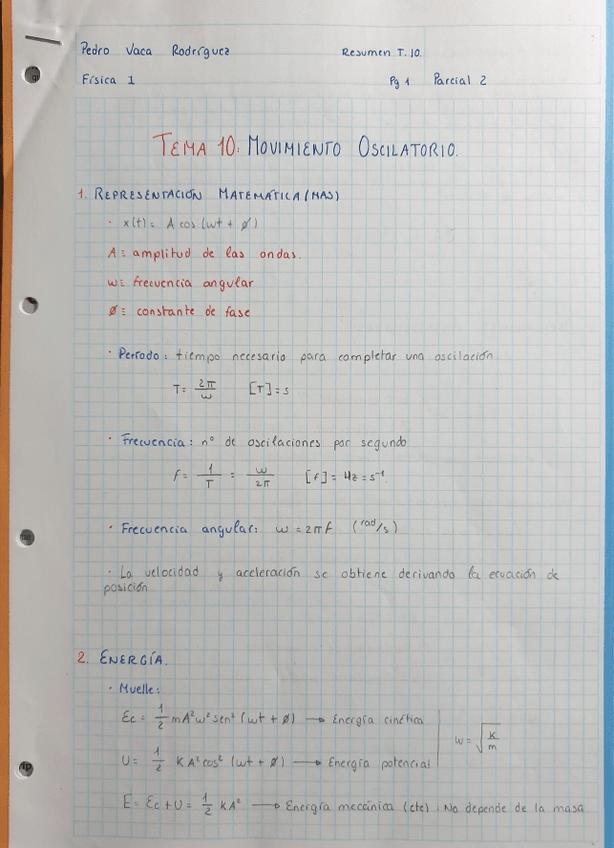 Pedro Vaca Rodríguez
Resumen T. 10.
Física 1
Pg 1 Parcial 2
TEMA 10: MOVIMIENTO OSCILATORIO.
1. REPRESENTACIÓN MATEMÁTICA (MAS)
· x(t) = A cos (ωt + ø)
A ≡ amplitud de las ondas.
ω ≡ frecuencia angular
ø ≡ constante de fase
· Período: tiempo necesario para completar una oscilación
T = 2π/ω [T] = s
· Frecuencia: nº de oscilaciones por segundo
f = 1/T = ω/2π [f] = Hz = s⁻¹
· Frecuencia angular: ω = 2πf (rad/s)
· La velocidad y aceleración se obtiene derivando la ecuación de
posición
2. ENERGÍA.
· Muelle:
Ec = 1/2 mA²ω² sen² (ωt + ø) → Energía cinética
ω = √(K/m)
U = 1/2 KA² cos² (ωt + ø) → Energía potencial
E = Ec + U = 1/2 KA² → Energía mecánica (cte). No depende de la masa